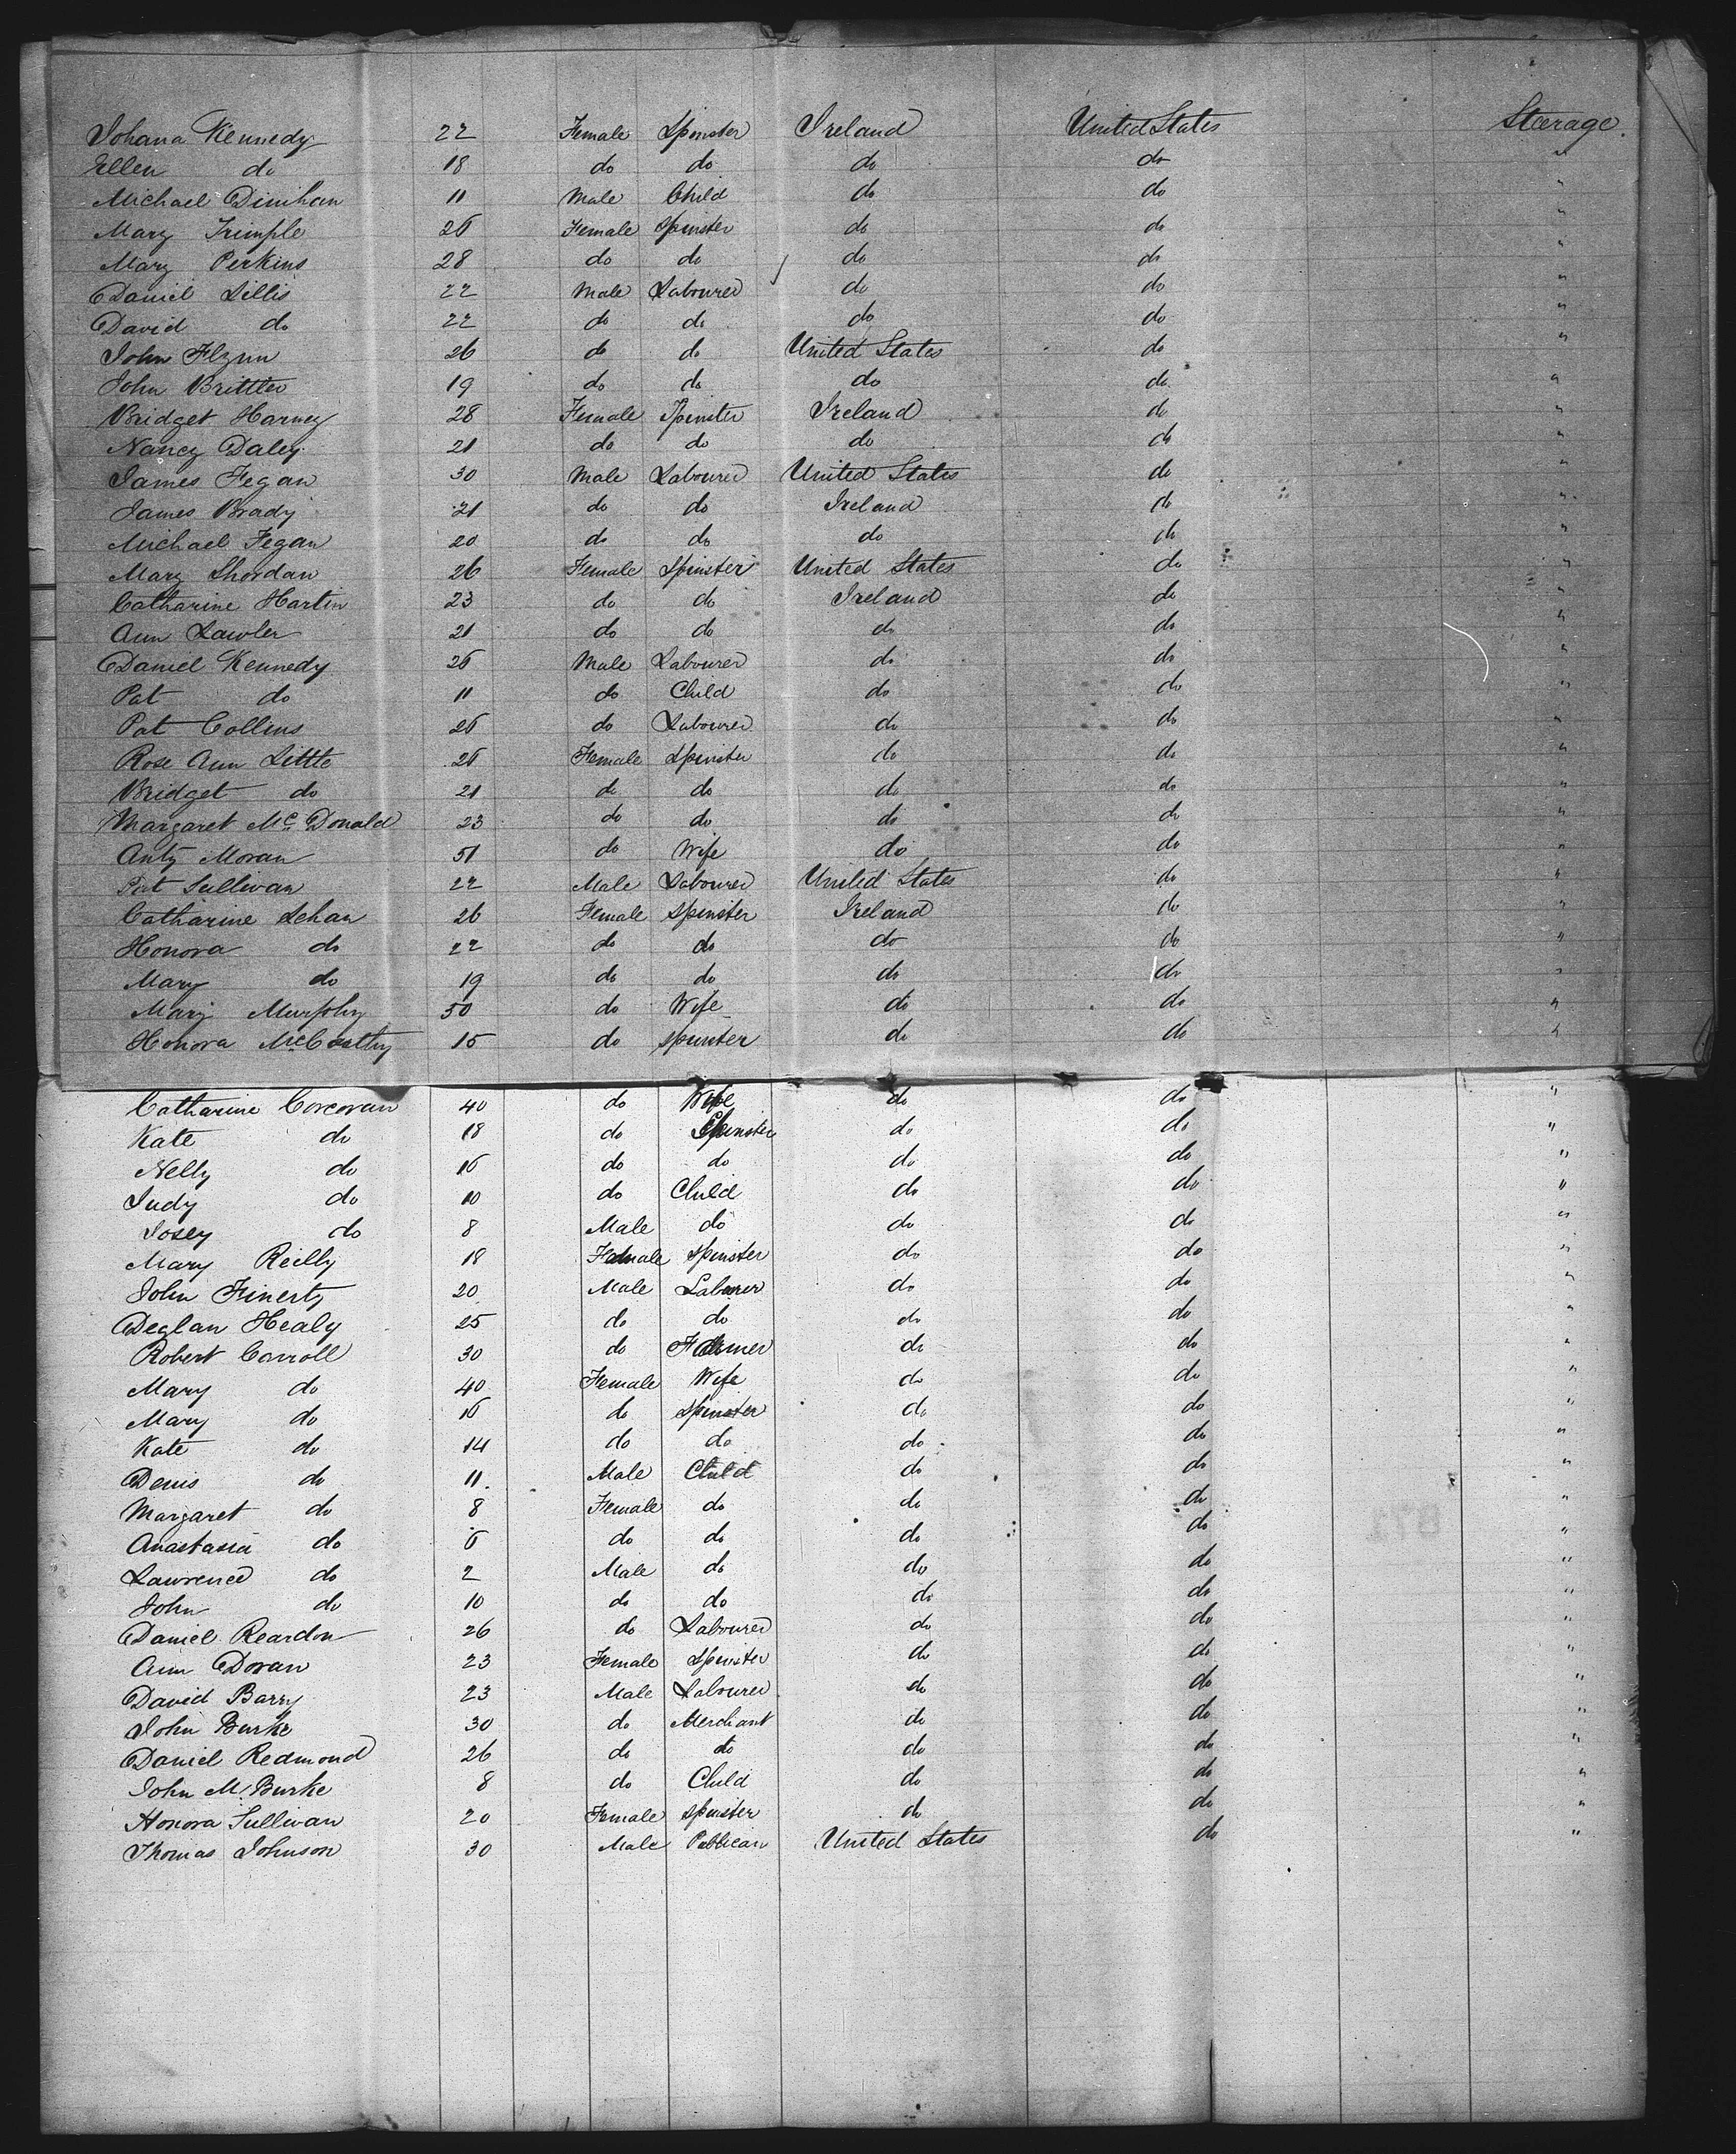 Johana Kennedy 22 Female Spinster Ireland United States Steerage.
Ellen do 18 do do do do "
Michael Dinihan 11 Male Child do do "
Mary Trimple 26 Female Spinster do do "
Mary Perkins 28 do do do do "
Daniel Lillis 22 Male Labourer do do "
David do 22 do do do do "
John Flynn 26 do do United States do "
John Brittler 19 do do do do "
Bridget Harney 28 Female Spinster Ireland do "
Nancy Daley 21 do do do do "
James Fegan 30 Male Labourer United States do "
James Brady 21 do do Ireland do "
Michael Fegan 20 do do do do "
Mary Shordan 26 Female Spinster United States do "
Catharine Hartin 23 do do Ireland do "
Ann Lawler 21 do do do do "
Daniel Kennedy 26 Male Labourer do do "
Pat do 11 do Child do do "
Pat Collins 26 do Labourer do do "
Rose Ann Little 26 Female Spinster do do "
Bridget do 21 do do do do "
Margaret Mc Donald 23 do do do do "
Anty Moran 51 do Wife do do "
Pat Sullivan 22 Male Labourer United States do "
Catharine Lehan 26 Female Spinster Ireland do "
Honora do 22 do do do do "
Mary do 19 do do do do "
Mary Murphy 50 do Wife do do "
Honora McCarthy 15 do Spinster do do "
Catharine Corcoran 40 do Wife do do "
Kate do 18 do Spinster do do "
Nelly do 16 do do do do "
Judy do 10 do Child do do "
Josey do 8 Male do do do "
Mary Reilly 18 Female Spinster do do "
John Finerty 20 Male Laborer do do "
Deglan Healy 25 do do do do "
Robert Carroll 30 do Farmer do do "
Mary do 40 Female Wife do do "
Mary do 16 do Spinster do do "
Kate do 14 do do do do "
Denis do 11. Male Child do do "
Margaret do 8 Female do do do "
Anastasia do 6 do do do do "
Lawrence do 2 Male do do do "
John do 10 do do do do "
Daniel Reardon 26 do Labourer do do "
Ann Doran 23 Female Spinster do do "
David Barry 23 Male Labourer do do "
John Burke 30 do Merchant do do "
Daniel Redmond 26 do do do do "
John M. Burke 8 do Child do do "
Honora Sullivan 20 Female Spinster do do "
Thomas Johnson 30 Male Publican United States do "